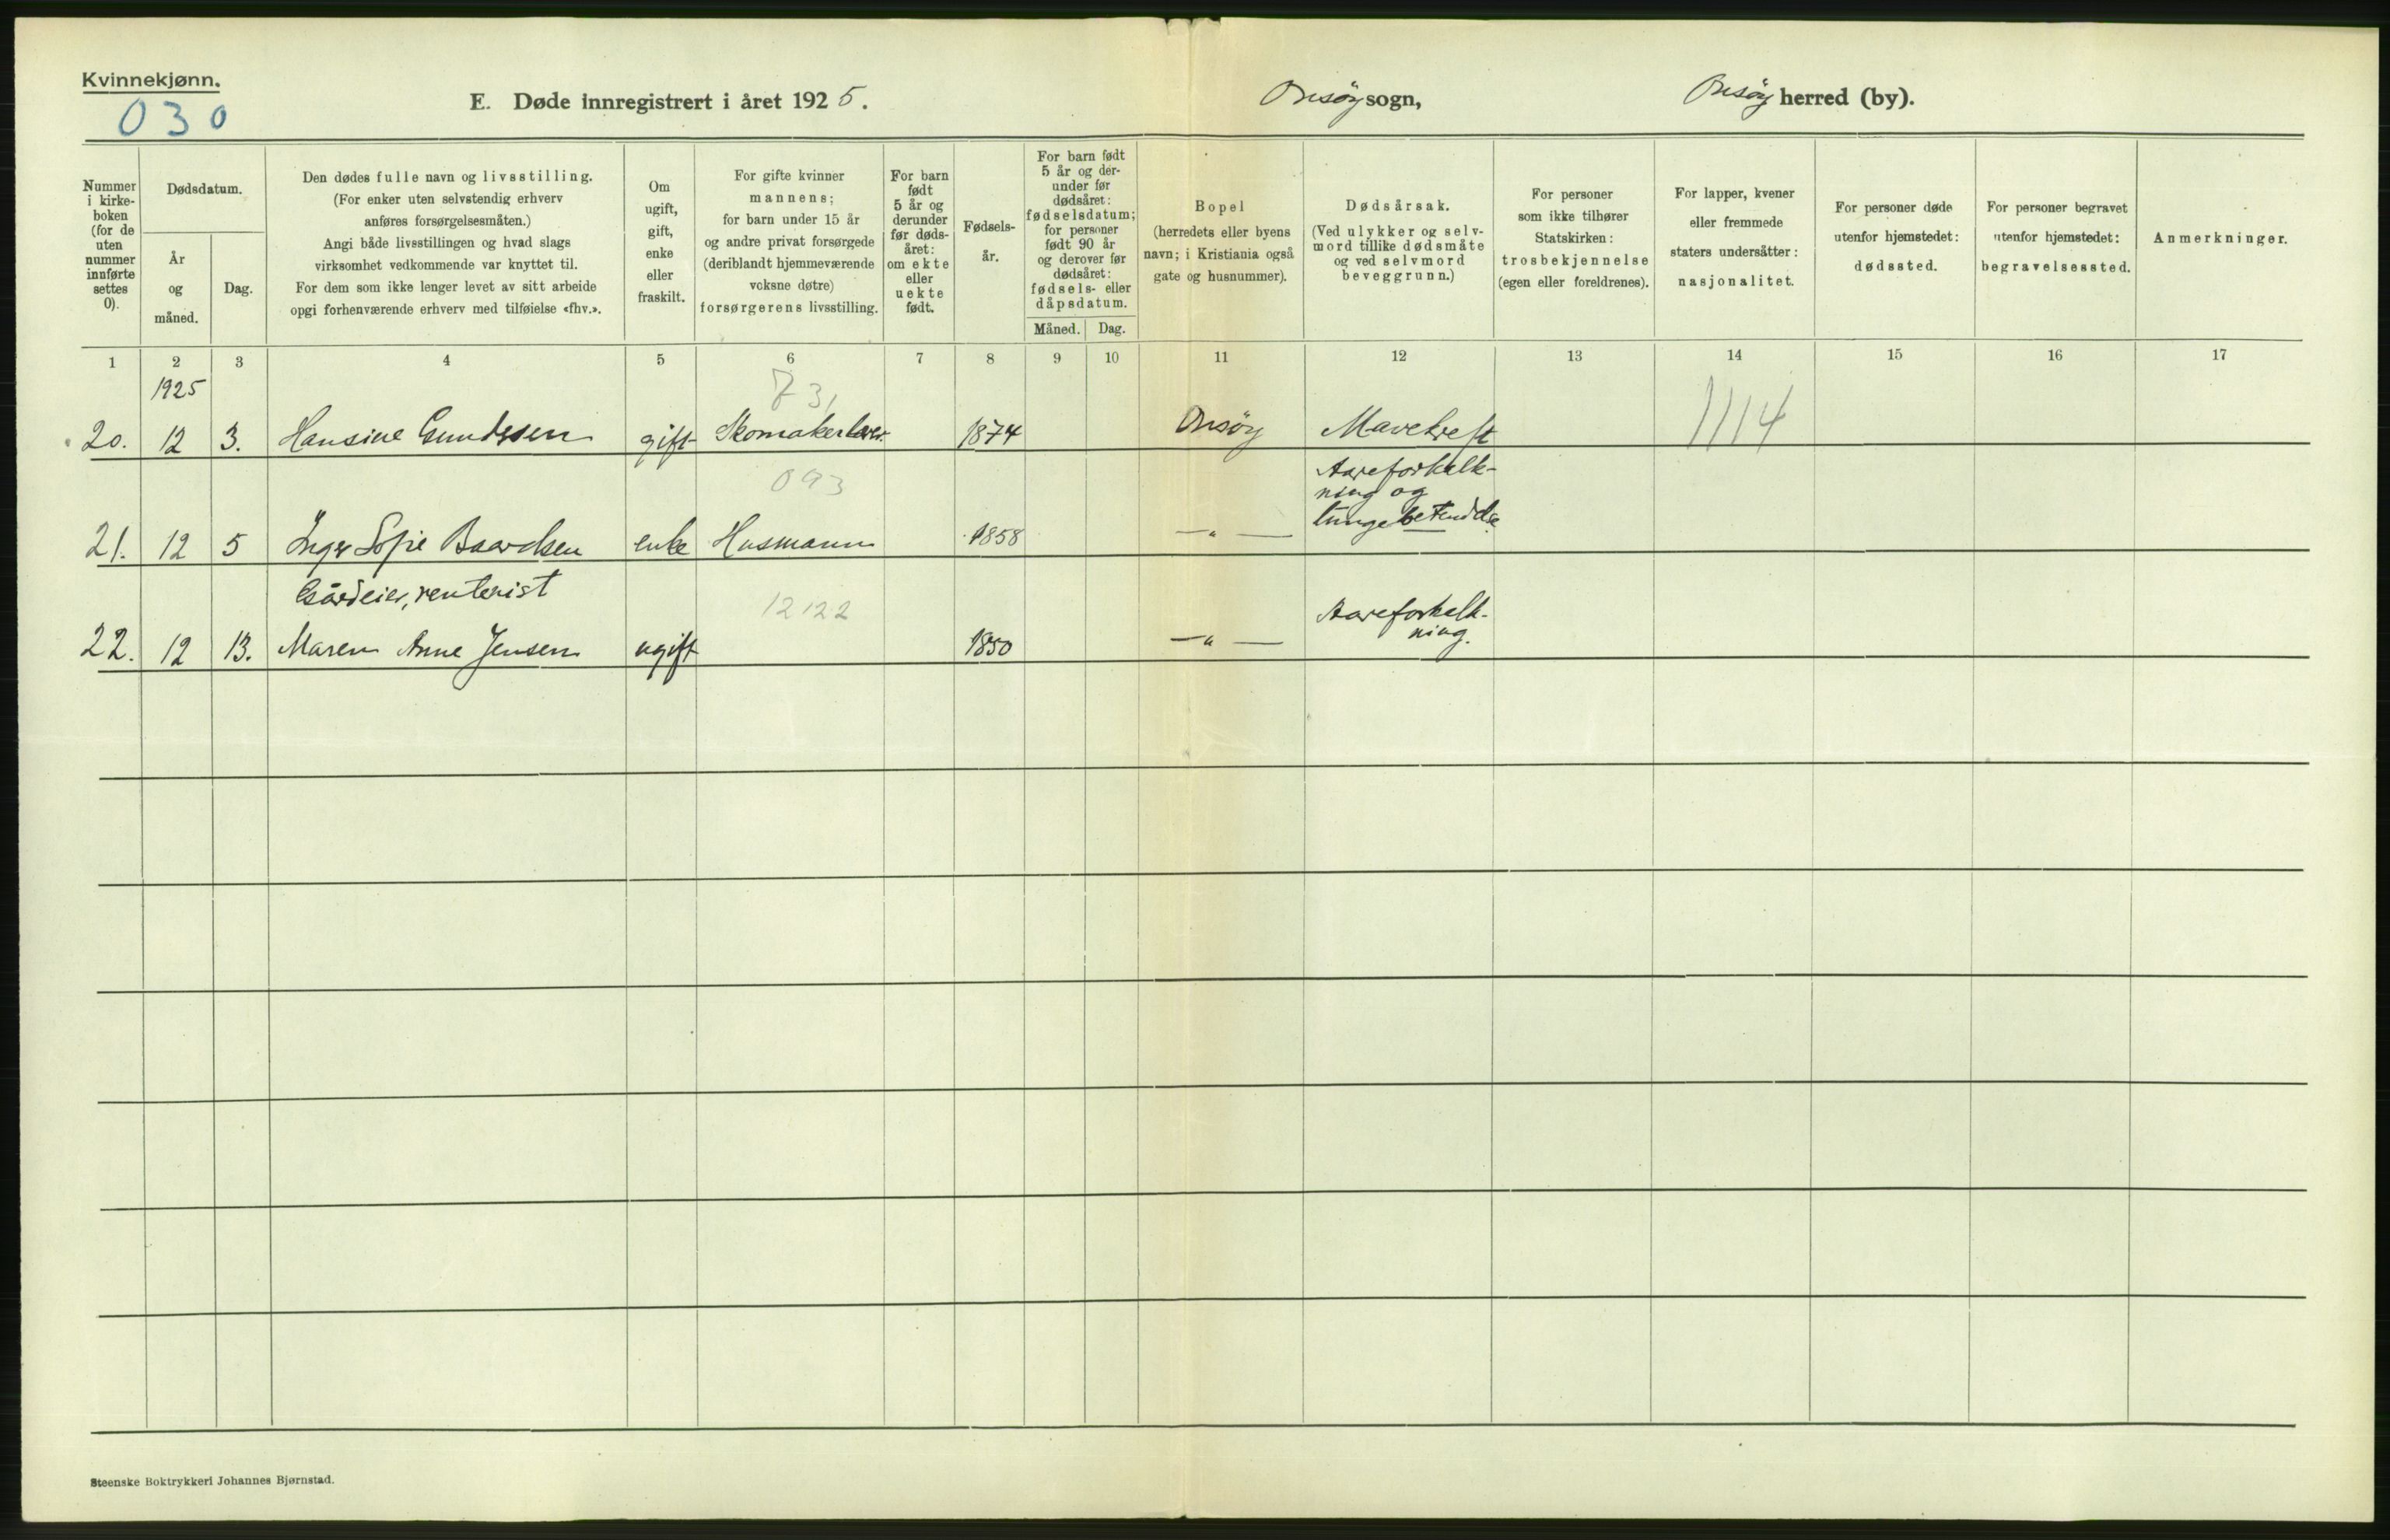 Kvinnekjønn.
030
E. Døde innregistrert i året 1925.
Onsöy sogn,
Onsöy herred (by).
Nummer i kirke- boken (for de uten nummer innførte settes 0).
Dødsdatum.
År og måned.
Dag.
Den dødes fulle navn og livsstilling.
(For enker uten selvstendig erhverv
anføres forsørgelsesmåten.)
Angi både livsstillingen og hvad slags
virksomhet vedkommende var knyttet til.
For dem som ikke lenger levet av sitt arbeide
opgi forhenværende erhverv med tilføielse «fhv.».
Om ugift, gift, enke eller fraskilt.
For gifte kvinner
mannens;
for barn under 15 år
og andre privat forsørgede
(deriblandt hjemmeværende
voksne døtre)
forsørgerens livsstilling.
For barn født 5 år og derunder før døds- året: om ekte eller uekte født.
Fødsels- år.
For barn født 5 år og der- under før dødsåret: fødselsdatum; for personer født 90 år og derover før dødsåret: fødsels- eller dåpsdatum.
Måned.
Dag.
Bopel
(herredets eller byens
navn; i Kristiania også
gate og husnummer).
Dødsårsak.
(Ved ulykker og selv-
mord tillike dødsmåte
og ved selvmord
beveggrunn.)
For personer
som ikke tilhører
Statskirken:
trosbekjennelse
(egen eller foreldrenes).
For lapper, kvener
eller fremmede
staters undersåtter:
nasjonalitet.
For personer døde
utenfor hjemstedet:
dødssted.
For personer begravet
utenfor hjemstedet:
begravelsessted.
Anmerkninger.
1 2 3 4 5 6 7 8 9 10 11 12 13 14 15 16 17
1925
73,
20. 12 3. Hansine Gundersen gift Skomaker 1874 Onsöy Mavekreft 1114
093
Aareforkalk-
ning og
lungebetendelse
21. 12 5 Inger Sofie Baardsen enke Husmann 1858 -"-
Gårdeier, renterist
12122
Aareforkalk-
ning.
22. 12 13. Maren Anne Jensen ugift 1850 -"-
Steenske Boktrykkeri Johannes Bjørnstad.